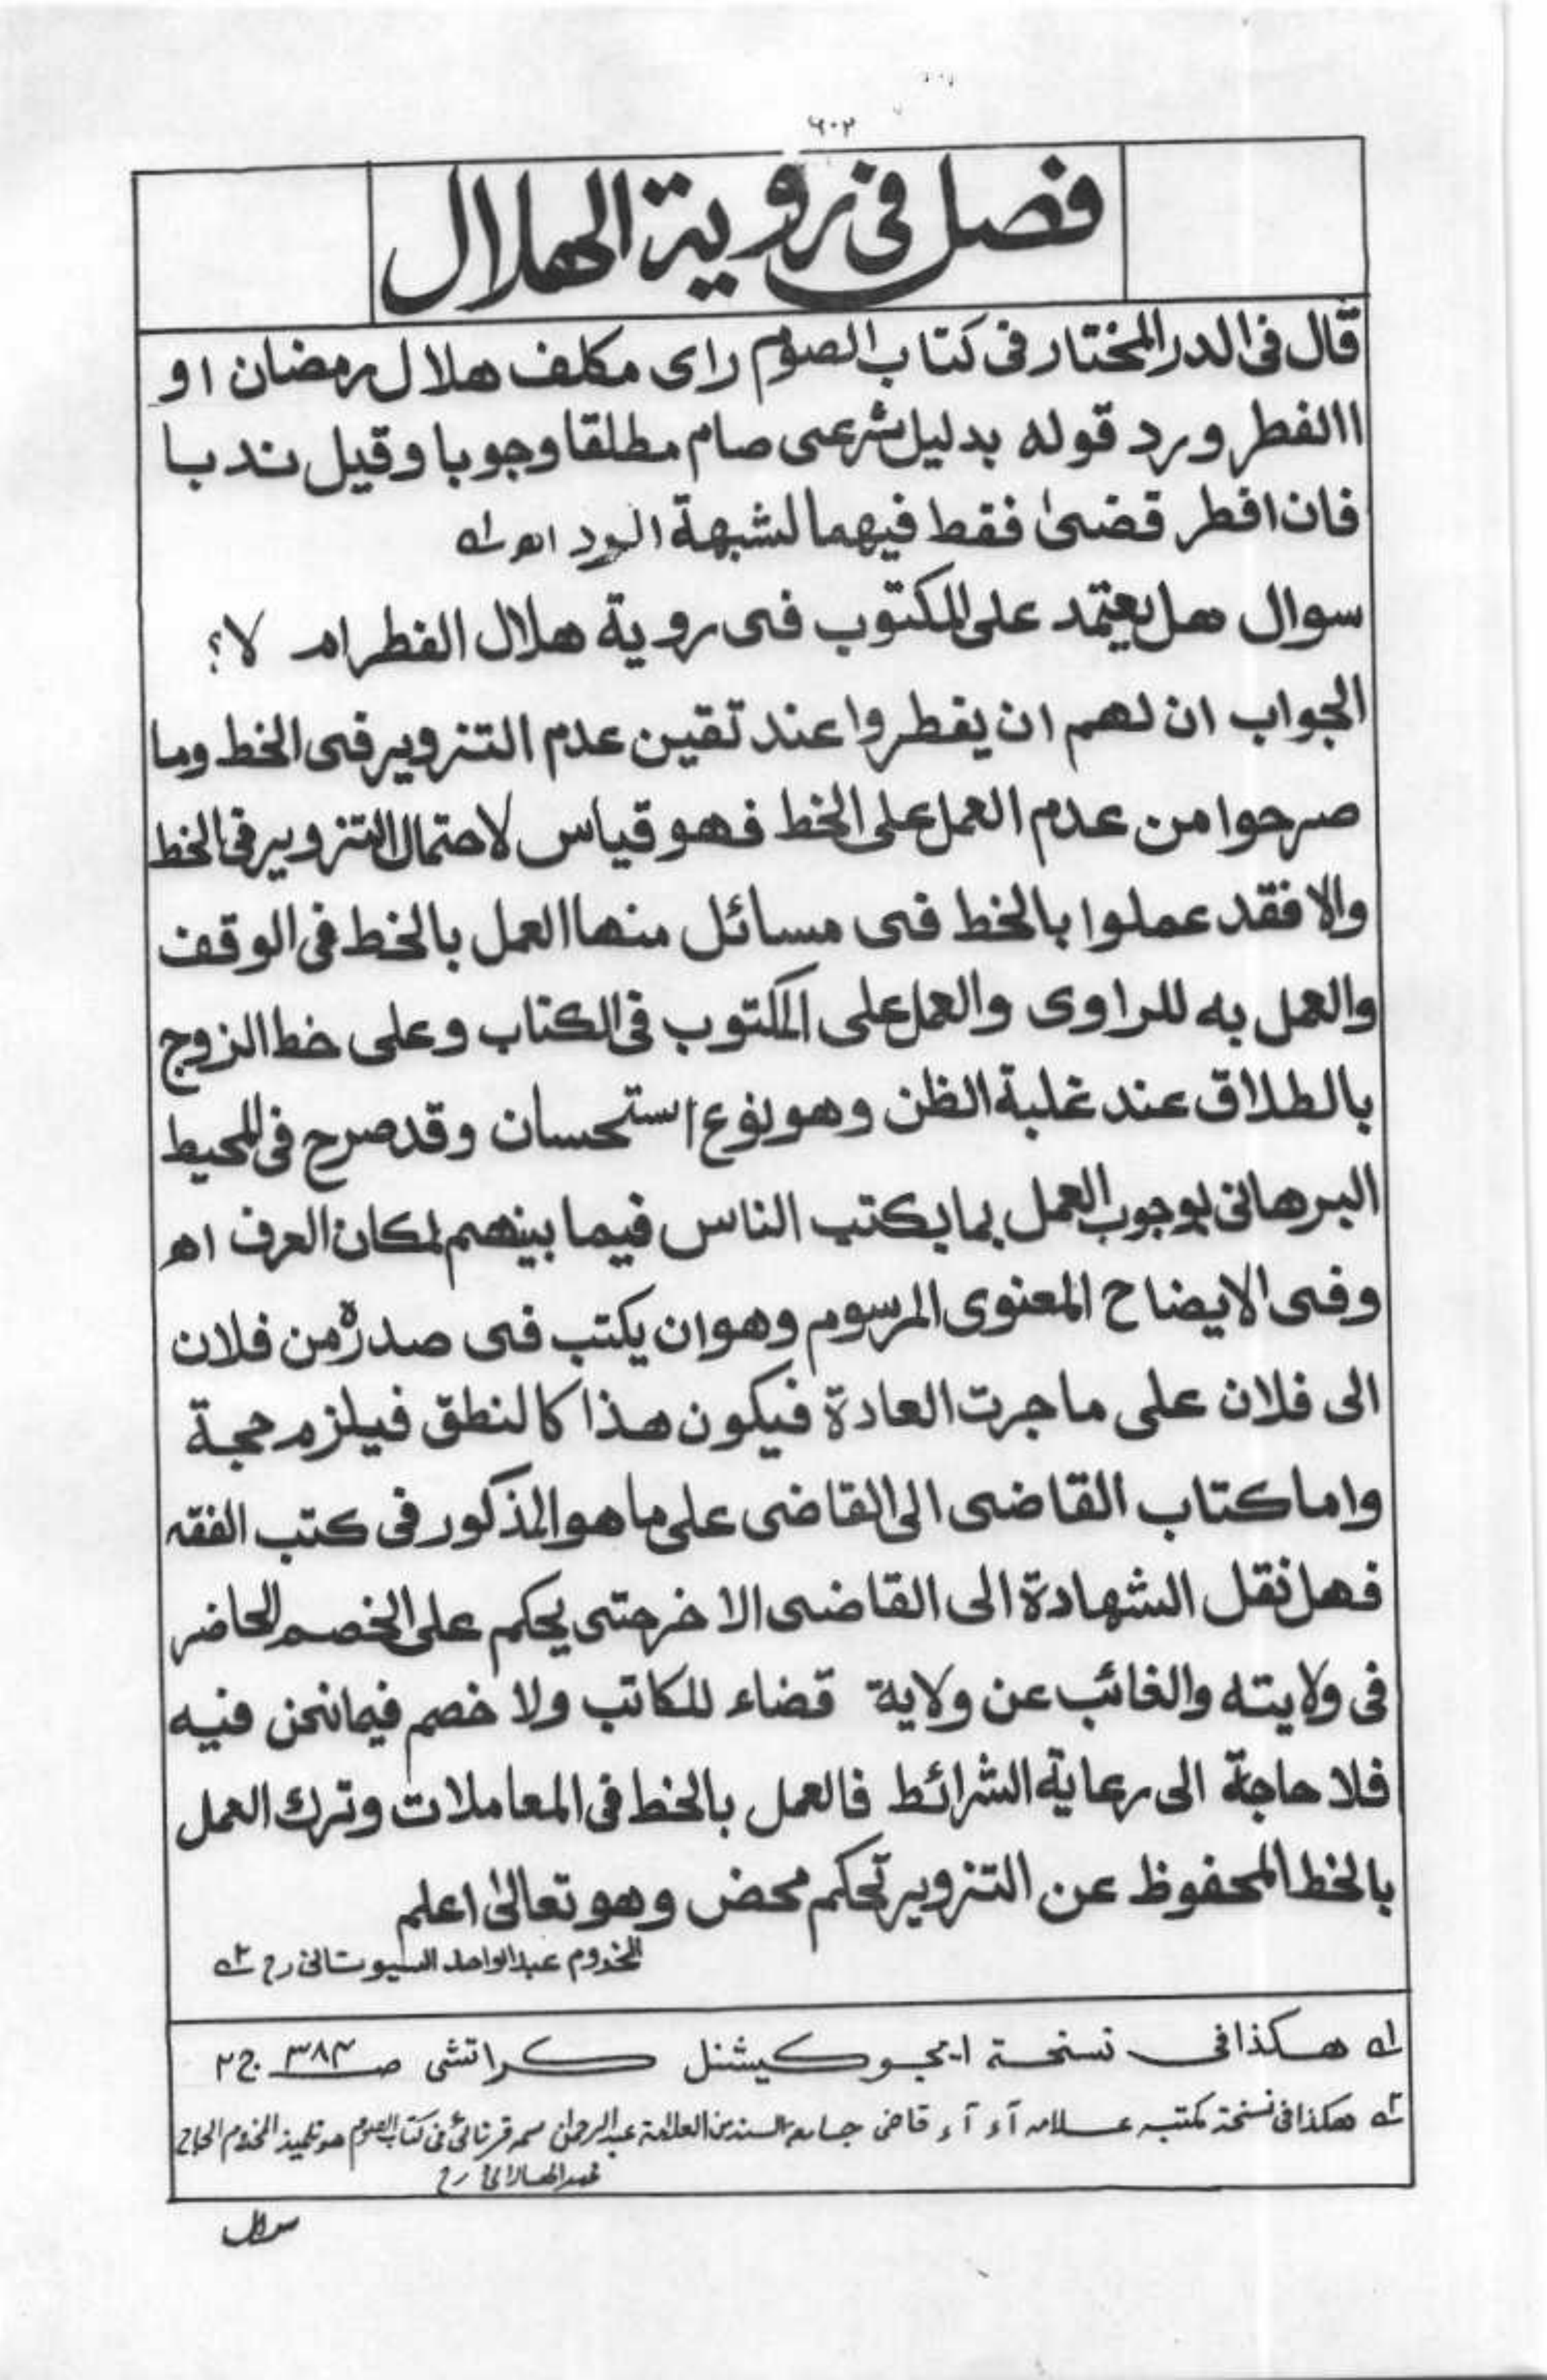 ٦٠٢
فصل فی رویة الهلال
قال فی الدر المختار فی کتاب الصوم رای مکلف هلال رمضان او
االفطر ورد قوله بدلیل شرعی صام مطلقا وجوبا وقیل ندبا
فان افطر قضیٰ فقط فیهما لشبهة الرد اھ لہ
سوال هل یعتمد علی المکتوب فی رویة هلال الفطر ام لا؟
الجواب ان لهم ان یفطروا عند تقین عدم التزویر فی الخط وما
صرحوا من عدم العمل علی الخط فهو قیاس لاحتمال التزویر فی الخط
والا فقد عملوا بالخط فی مسائل منها العمل بالخط فی الوقف
والعمل به للراوی والعمل علی المکتوب فی الکتاب وعلی خط الزوج
بالطلاق عند غلبة الظن وهو نوع استحسان وقد صرح فی المحیط
البرهانی بوجوب العمل بما یکتب الناس فیما بینهم لمکان العرف اھ
وفی الایضاح المعنوی المرسوم وهو ان یکتب فی صدره من فلان
الی فلان علی ما جرت العادة فیکون هذا کالنطق فیلزم حجة
واما کتاب القاضی الی القاضی علی ما هو المذکور فی کتب الفقه
فهل نقل الشهادة الی القاضی الاخر حتی یحکم علی الخصم الحاضر
فی ولایته والغائب عن ولایة قضاء للکاتب ولا خصم فیما نحن فیه
فلا حاجة الی رعایة الشرائط فالعمل بالخط فی المعاملات وترك العمل
بالخط المحفوظ عن التزویر تحکم محض وهو تعالیٰ اعلم
المخدوم عبدالواحد السیوستانی رح ٢ہ
لہ هکذا فی نسخة ایجوکیشنل کراتشی صـ ٣٨٤ ج ٢
٢ہ هکذا فی نسخة مکتبہ علامہ آء آء قاضی جامعہ السند من العلامة عبدالرحمان فی کتاب الصوم هو تلمیذ المخدوم الحاج
سوال